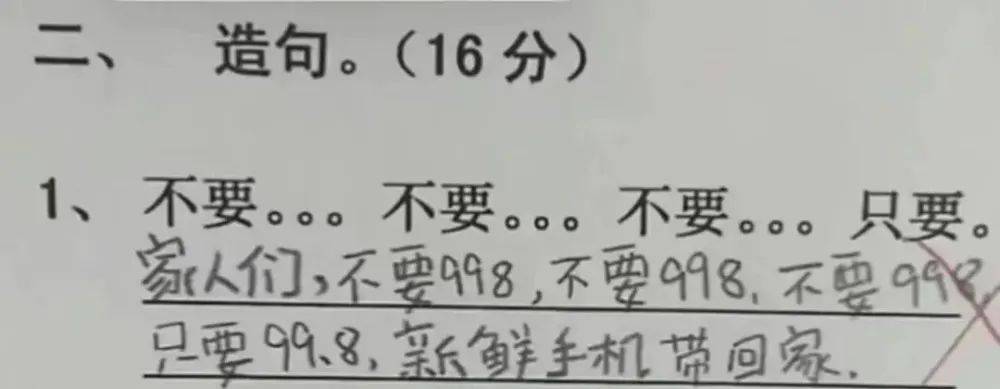 二、 造句。（16 分）
1、 不要。。。 不要。。。 不要。。。 只要。
家人们，不要998，不要998，不要998，
只要99.8，新鲜手机带回家.